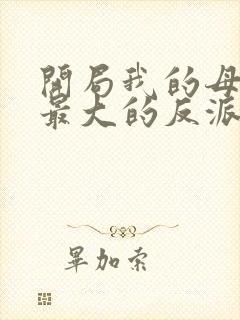 開局我的母
最大的反派
畢加索